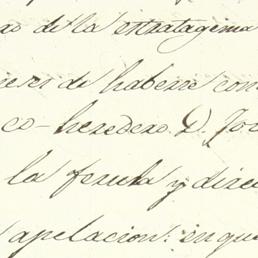 de la estratagema
de haberse con
co-heredero D. Jo
la ferula y dire
apelacion: in que